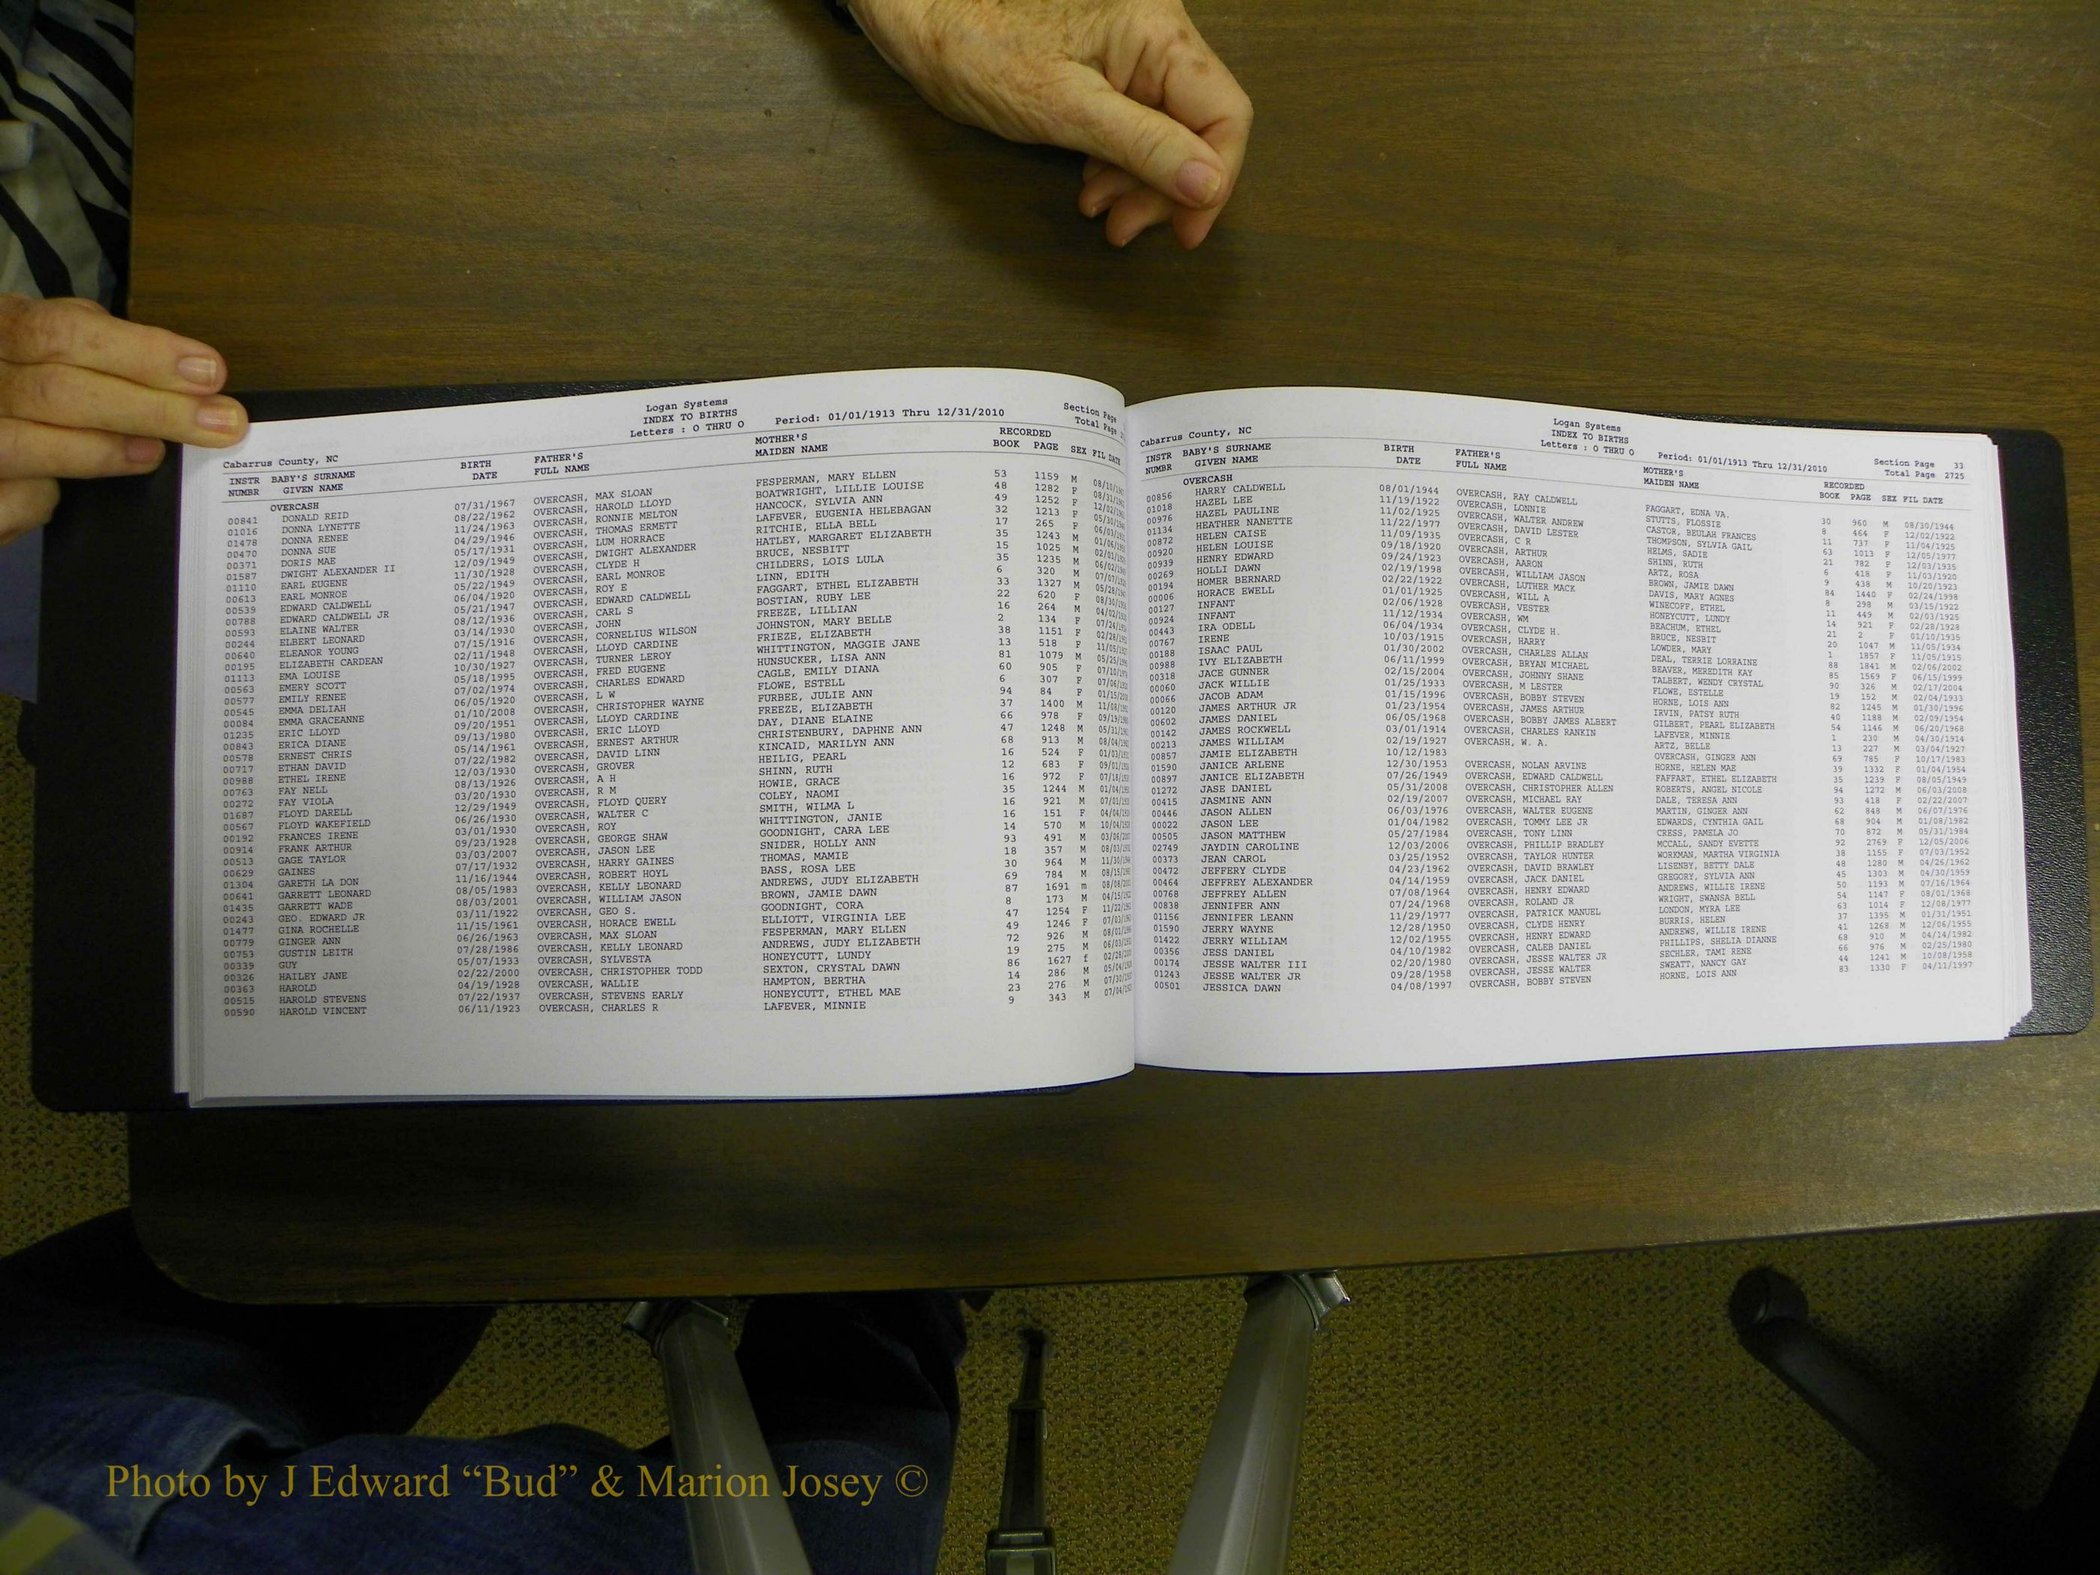 Logan Systems
INDEX TO BIRTHS
Letters : O THRU O
Period: 01/01/1913 Thru 12/31/2010
Section Page
Total Page
Cabarrus County, NC
INSTR NUMBR BABY'S SURNAME GIVEN NAME BIRTH DATE FATHER'S FULL NAME MOTHER'S MAIDEN NAME RECORDED BOOK PAGE SEX FIL DATE
OVERCASH
00841 DONALD REID 07/31/1967 OVERCASH, MAX SLOAN FESPERMAN, MARY ELLEN 53 1159 M
01016 DONNA LYNETTE 08/22/1962 OVERCASH, HAROLD LLOYD BOATWRIGHT, LILLIE LOUISE 48 1282 F
01478 DONNA RENEE 11/24/1963 OVERCASH, RONNIE MELTON HANCOCK, SYLVIA ANN 49 1252 F
00470 DONNA SUE 04/29/1946 OVERCASH, THOMAS ERMETT LAFEVER, EUGENIA HELEBAGAN 32 1213 F
00371 DORIS MAE 05/17/1931 OVERCASH, LUM HORRACE RITCHIE, ELLA BELL 17 265 F
01587 DWIGHT ALEXANDER II 12/09/1949 OVERCASH, DWIGHT ALEXANDER HATLEY, MARGARET ELIZABETH 35 1243 M
01110 EARL EUGENE 11/30/1928 OVERCASH, CLYDE H BRUCE, NESBITT 15 1025 M
00613 EARL MONROE 05/22/1949 OVERCASH, EARL MONROE CHILDERS, LOIS LULA 35 1235 M
00539 EDWARD CALDWELL 06/04/1920 OVERCASH, ROY E LINN, EDITH 6 320 M
00788 EDWARD CALDWELL JR 05/21/1947 OVERCASH, EDWARD CALDWELL FAGGART, ETHEL ELIZABETH 33 1327 M
00593 ELAINE WALTER 08/12/1936 OVERCASH, CARL S BOSTIAN, RUBY LEE 22 620 F
00244 ELBERT LEONARD 03/14/1930 OVERCASH, JOHN FREEZE, LILLIAN 16 264 M
00640 ELEANOR YOUNG 07/15/1916 OVERCASH, CORNELIUS WILSON JOHNSTON, MARY BELLE 2 134 F
00195 ELIZABETH CARDEAN 02/11/1948 OVERCASH, LLOYD CARDINE FRIEZE, ELIZABETH 38 1151 F
01113 EMA LOUISE 10/30/1927 OVERCASH, TURNER LEROY WHITTINGTON, MAGGIE JANE 13 518 F
00563 EMERY SCOTT 05/18/1995 OVERCASH, FRED EUGENE HUNSUCKER, LISA ANN 81 1079 M
00577 EMILY RENEE 07/02/1974 OVERCASH, CHARLES EDWARD CAGLE, EMILY DIANA 60 905 F
00545 EMMA DELIAH 06/05/1920 OVERCASH, L W FLOWE, ESTELL 6 307 F
00084 EMMA GRACEANNE 01/10/2008 OVERCASH, CHRISTOPHER WAYNE FURBEE, JULIE ANN 94 84 F
01235 ERIC LLOYD 09/20/1951 OVERCASH, LLOYD CARDINE FREEZE, ELIZABETH 37 1400 M
00843 ERICA DIANE 09/13/1980 OVERCASH, ERIC LLOYD DAY, DIANE ELAINE 66 978 F
00578 ERNEST CHRIS 05/14/1961 OVERCASH, ERNEST ARTHUR CHRISTENBURY, DAPHNE ANN 47 1248 M
00717 ETHAN DAVID 07/22/1982 OVERCASH, DAVID LINN KINCAID, MARILYN ANN 68 913 M
00988 ETHEL IRENE 12/03/1930 OVERCASH, GROVER HEILIG, PEARL 16 524 F
00763 FAY NELL 08/13/1926 OVERCASH, A H SHINN, RUTH 12 683 F
00272 FAY VIOLA 03/20/1930 OVERCASH, R M HOWIE, GRACE 16 972 F
01687 FLOYD DARELL 12/29/1949 OVERCASH, FLOYD QUERY COLEY, NAOMI 35 1244 M
00567 FLOYD WAKEFIELD 06/26/1930 OVERCASH, WALTER C SMITH, WILMA L 16 921 M
00192 FRANCES IRENE 03/01/1930 OVERCASH, ROY WHITTINGTON, JANIE 16 151 F
00914 FRANK ARTHUR 09/23/1928 OVERCASH, GEORGE SHAW GOODNIGHT, CARA LEE 14 570 M
00513 GAGE TAYLOR 03/03/2007 OVERCASH, JASON LEE SNIDER, HOLLY ANN 93 491 M
00629 GAINES 07/17/1932 OVERCASH, HARRY GAINES THOMAS, MAMIE 18 357 M
01304 GARETH LA DON 11/16/1944 OVERCASH, ROBERT HOYL BASS, ROSA LEE 30 964 M
00641 GARRETT LEONARD 08/05/1983 OVERCASH, KELLY LEONARD ANDREWS, JUDY ELIZABETH 69 784 M
01435 GARRETT WADE 08/03/2001 OVERCASH, WILLIAM JASON BROWN, JAMIE DAWN 87 1691 m
00243 GEO. EDWARD JR 03/11/1922 OVERCASH, GEO S. GOODNIGHT, CORA 8 173 M
01477 GINA ROCHELLE 11/15/1961 OVERCASH, HORACE EWELL ELLIOTT, VIRGINIA LEE 47 1254 F
00779 GINGER ANN 06/26/1963 OVERCASH, MAX SLOAN FESPERMAN, MARY ELLEN 49 1246 F
00753 GUSTIN LEITH 07/28/1986 OVERCASH, KELLY LEONARD ANDREWS, JUDY ELIZABETH 72 926 M
00339 GUY 05/07/1933 OVERCASH, SYLVESTA HONEYCUTT, LUNDY 19 275 M
00326 HAILEY JANE 02/22/2000 OVERCASH, CHRISTOPHER TODD SEXTON, CRYSTAL DAWN 86 1627 f
00363 HAROLD 04/19/1928 OVERCASH, WALLIE HAMPTON, BERTHA 14 286 M
00515 HAROLD STEVENS 07/22/1937 OVERCASH, STEVENS EARLY HONEYCUTT, ETHEL MAE 23 276 M
00590 HAROLD VINCENT 06/11/1923 OVERCASH, CHARLES R LAFEVER, MINNIE 9 343 M
Logan Systems
INDEX TO BIRTHS
Letters : O THRU O
Period: 01/01/1913 Thru 12/31/2010
Section Page 33
Total Page 2725
Cabarrus County, NC
INSTR NUMBR BABY'S SURNAME GIVEN NAME BIRTH DATE FATHER'S FULL NAME MOTHER'S MAIDEN NAME RECORDED BOOK PAGE SEX FIL DATE
OVERCASH
00856 HARRY CALDWELL 08/01/1944 OVERCASH, RAY CALDWELL FAGGART, EDNA VA. 30 960 M 08/30/1944
01018 HAZEL LEE 11/19/1922 OVERCASH, LONNIE STUTTS, FLOSSIE 8 464 F 12/02/1922
00976 HAZEL PAULINE 11/02/1925 OVERCASH, WALTER ANDREW CASTOR, BEULAH FRANCES 11 737 F 11/04/1925
01134 HEATHER NANETTE 11/22/1977 OVERCASH, DAVID LESTER THOMPSON, SYLVIA GAIL 63 1013 F 12/05/1977
00872 HELEN CAISE 11/09/1935 OVERCASH, C R HELMS, SADIE 21 782 F 12/03/1935
00920 HELEN LOUISE 09/18/1920 OVERCASH, ARTHUR SHINN, RUTH 6 418 F 11/03/1920
00939 HENRY EDWARD 09/24/1923 OVERCASH, AARON ARTZ, ROSA 9 438 M 10/20/1923
00269 HOLLI DAWN 02/19/1998 OVERCASH, WILLIAM JASON BROWN, JAMIE DAWN 84 1440 F 02/24/1998
00194 HOMER BERNARD 02/22/1922 OVERCASH, LUTHER MACK DAVIS, MARY AGNES 8 298 M 03/15/1922
00006 HORACE EWELL 01/01/1925 OVERCASH, WILL A WINECOFF, ETHEL 11 449 M 02/03/1925
00127 INFANT 02/06/1928 OVERCASH, VESTER HONEYCUTT, LUNDY 14 921 F 02/28/1928
00924 INFANT 11/12/1934 OVERCASH, WM BEACHUM, ETHEL 21 2 F 01/10/1935
00443 IRA ODELL 06/04/1934 OVERCASH, CLYDE H. BRUCE, NESBIT 20 1047 M 11/05/1934
00767 IRENE 10/03/1915 OVERCASH, HARRY LOWDER, MARY 1 1857 F 11/05/1915
00188 ISAAC PAUL 01/30/2002 OVERCASH, CHARLES ALLAN DEAL, TERRIE LORRAINE 88 1841 M 02/06/2002
00988 IVY ELIZABETH 06/11/1999 OVERCASH, BRYAN MICHAEL BEAVER, MEREDITH KAY 85 1569 F 06/15/1999
00318 JACE GUNNER 02/15/2004 OVERCASH, JOHNNY SHANE TALBERT, WENDY CRYSTAL 90 326 M 02/17/2004
00060 JACK WILLIE 01/25/1933 OVERCASH, M LESTER FLOWE, ESTELLE 19 152 M 02/04/1933
00066 JACOB ADAM 01/15/1996 OVERCASH, BOBBY STEVEN HORNE, LOIS ANN 82 1245 M 01/30/1996
00120 JAMES ARTHUR JR 01/23/1954 OVERCASH, JAMES ARTHUR IRVIN, PATSY RUTH 40 1188 M 02/09/1954
00602 JAMES DANIEL 06/05/1968 OVERCASH, BOBBY JAMES ALBERT GILBERT, PEARL ELIZABETH 54 1146 M 06/20/1968
00142 JAMES ROCKWELL 03/01/1914 OVERCASH, CHARLES RANKIN LAFEVER, MINNIE 1 230 M 04/30/1914
00213 JAMES WILLIAM 02/19/1927 OVERCASH, W. A. ARTZ, BELLE 13 227 M 03/04/1927
00857 JAMIE ELIZABETH 10/12/1983 OVERCASH, GINGER ANN 69 785 F 10/17/1983
01590 JANICE ARLENE 12/30/1953 OVERCASH, NOLAN ARVINE HORNE, HELEN MAE 39 1332 F 01/04/1954
00897 JANICE ELIZABETH 07/26/1949 OVERCASH, EDWARD CALDWELL FAFFART, ETHEL ELIZABETH 35 1239 F 08/05/1949
01272 JASE DANIEL 05/31/2008 OVERCASH, CHRISTOPHER ALLEN ROBERTS, ANGEL NICOLE 94 1272 M 06/03/2008
00415 JASMINE ANN 02/19/2007 OVERCASH, MICHAEL RAY DALE, TERESA ANN 93 418 F 02/22/2007
00446 JASON ALLEN 06/03/1976 OVERCASH, WALTER EUGENE MARTIN, GINGER ANN 62 848 M 06/07/1976
00022 JASON LEE 01/04/1982 OVERCASH, TOMMY LEE JR EDWARDS, CYNTHIA GAIL 68 904 M 01/08/1982
00505 JASON MATTHEW 05/27/1984 OVERCASH, TONY LINN CRESS, PAMELA JO 70 872 M 05/31/1984
02749 JAYDIN CAROLINE 12/03/2006 OVERCASH, PHILLIP BRADLEY MCCALL, SANDY EVETTE 92 2769 F 12/05/2006
00373 JEAN CAROL 03/25/1952 OVERCASH, TAYLOR HUNTER WORKMAN, MARTHA VIRGINIA 38 1155 F 07/03/1952
00472 JEFFERY CLYDE 04/23/1962 OVERCASH, DAVID BRAWLEY LISENBY, BETTY DALE 48 1280 M 04/26/1962
00464 JEFFREY ALEXANDER 04/14/1959 OVERCASH, JACK DANIEL GREGORY, SYLVIA ANN 45 1303 M 04/30/1959
00768 JEFFREY ALLEN 07/08/1964 OVERCASH, HENRY EDWARD ANDREWS, WILLIE IRENE 50 1193 M 07/16/1964
00838 JENNIFER ANN 07/24/1968 OVERCASH, ROLAND JR WRIGHT, SWANSA BELL 54 1147 F 08/01/1968
01156 JENNIFER LEANN 11/29/1977 OVERCASH, PATRICK MANUEL LONDON, MYRA LEE 63 1014 F 12/08/1977
01590 JERRY WAYNE 12/28/1950 OVERCASH, CLYDE HENRY BURRIS, HELEN 37 1395 M 01/31/1951
01422 JERRY WILLIAM 12/02/1955 OVERCASH, HENRY EDWARD ANDREWS, WILLIE IRENE 41 1268 M 12/06/1955
00356 JESS DANIEL 04/10/1982 OVERCASH, CALEB DANIEL PHILLIPS, SHELIA DIANNE 68 910 M 04/14/1982
00174 JESSE WALTER III 02/20/1980 OVERCASH, JESSE WALTER JR SECHLER, TAMI RENE 66 976 M 02/25/1980
01243 JESSE WALTER JR 09/28/1958 OVERCASH, JESSE WALTER SWEATT, NANCY GAY 44 1241 M 10/08/1958
00501 JESSICA DAWN 04/08/1997 OVERCASH, BOBBY STEVEN HORNE, LOIS ANN 83 1330 F 04/11/1997
Photo by J Edward “Bud” & Marion Josey ©